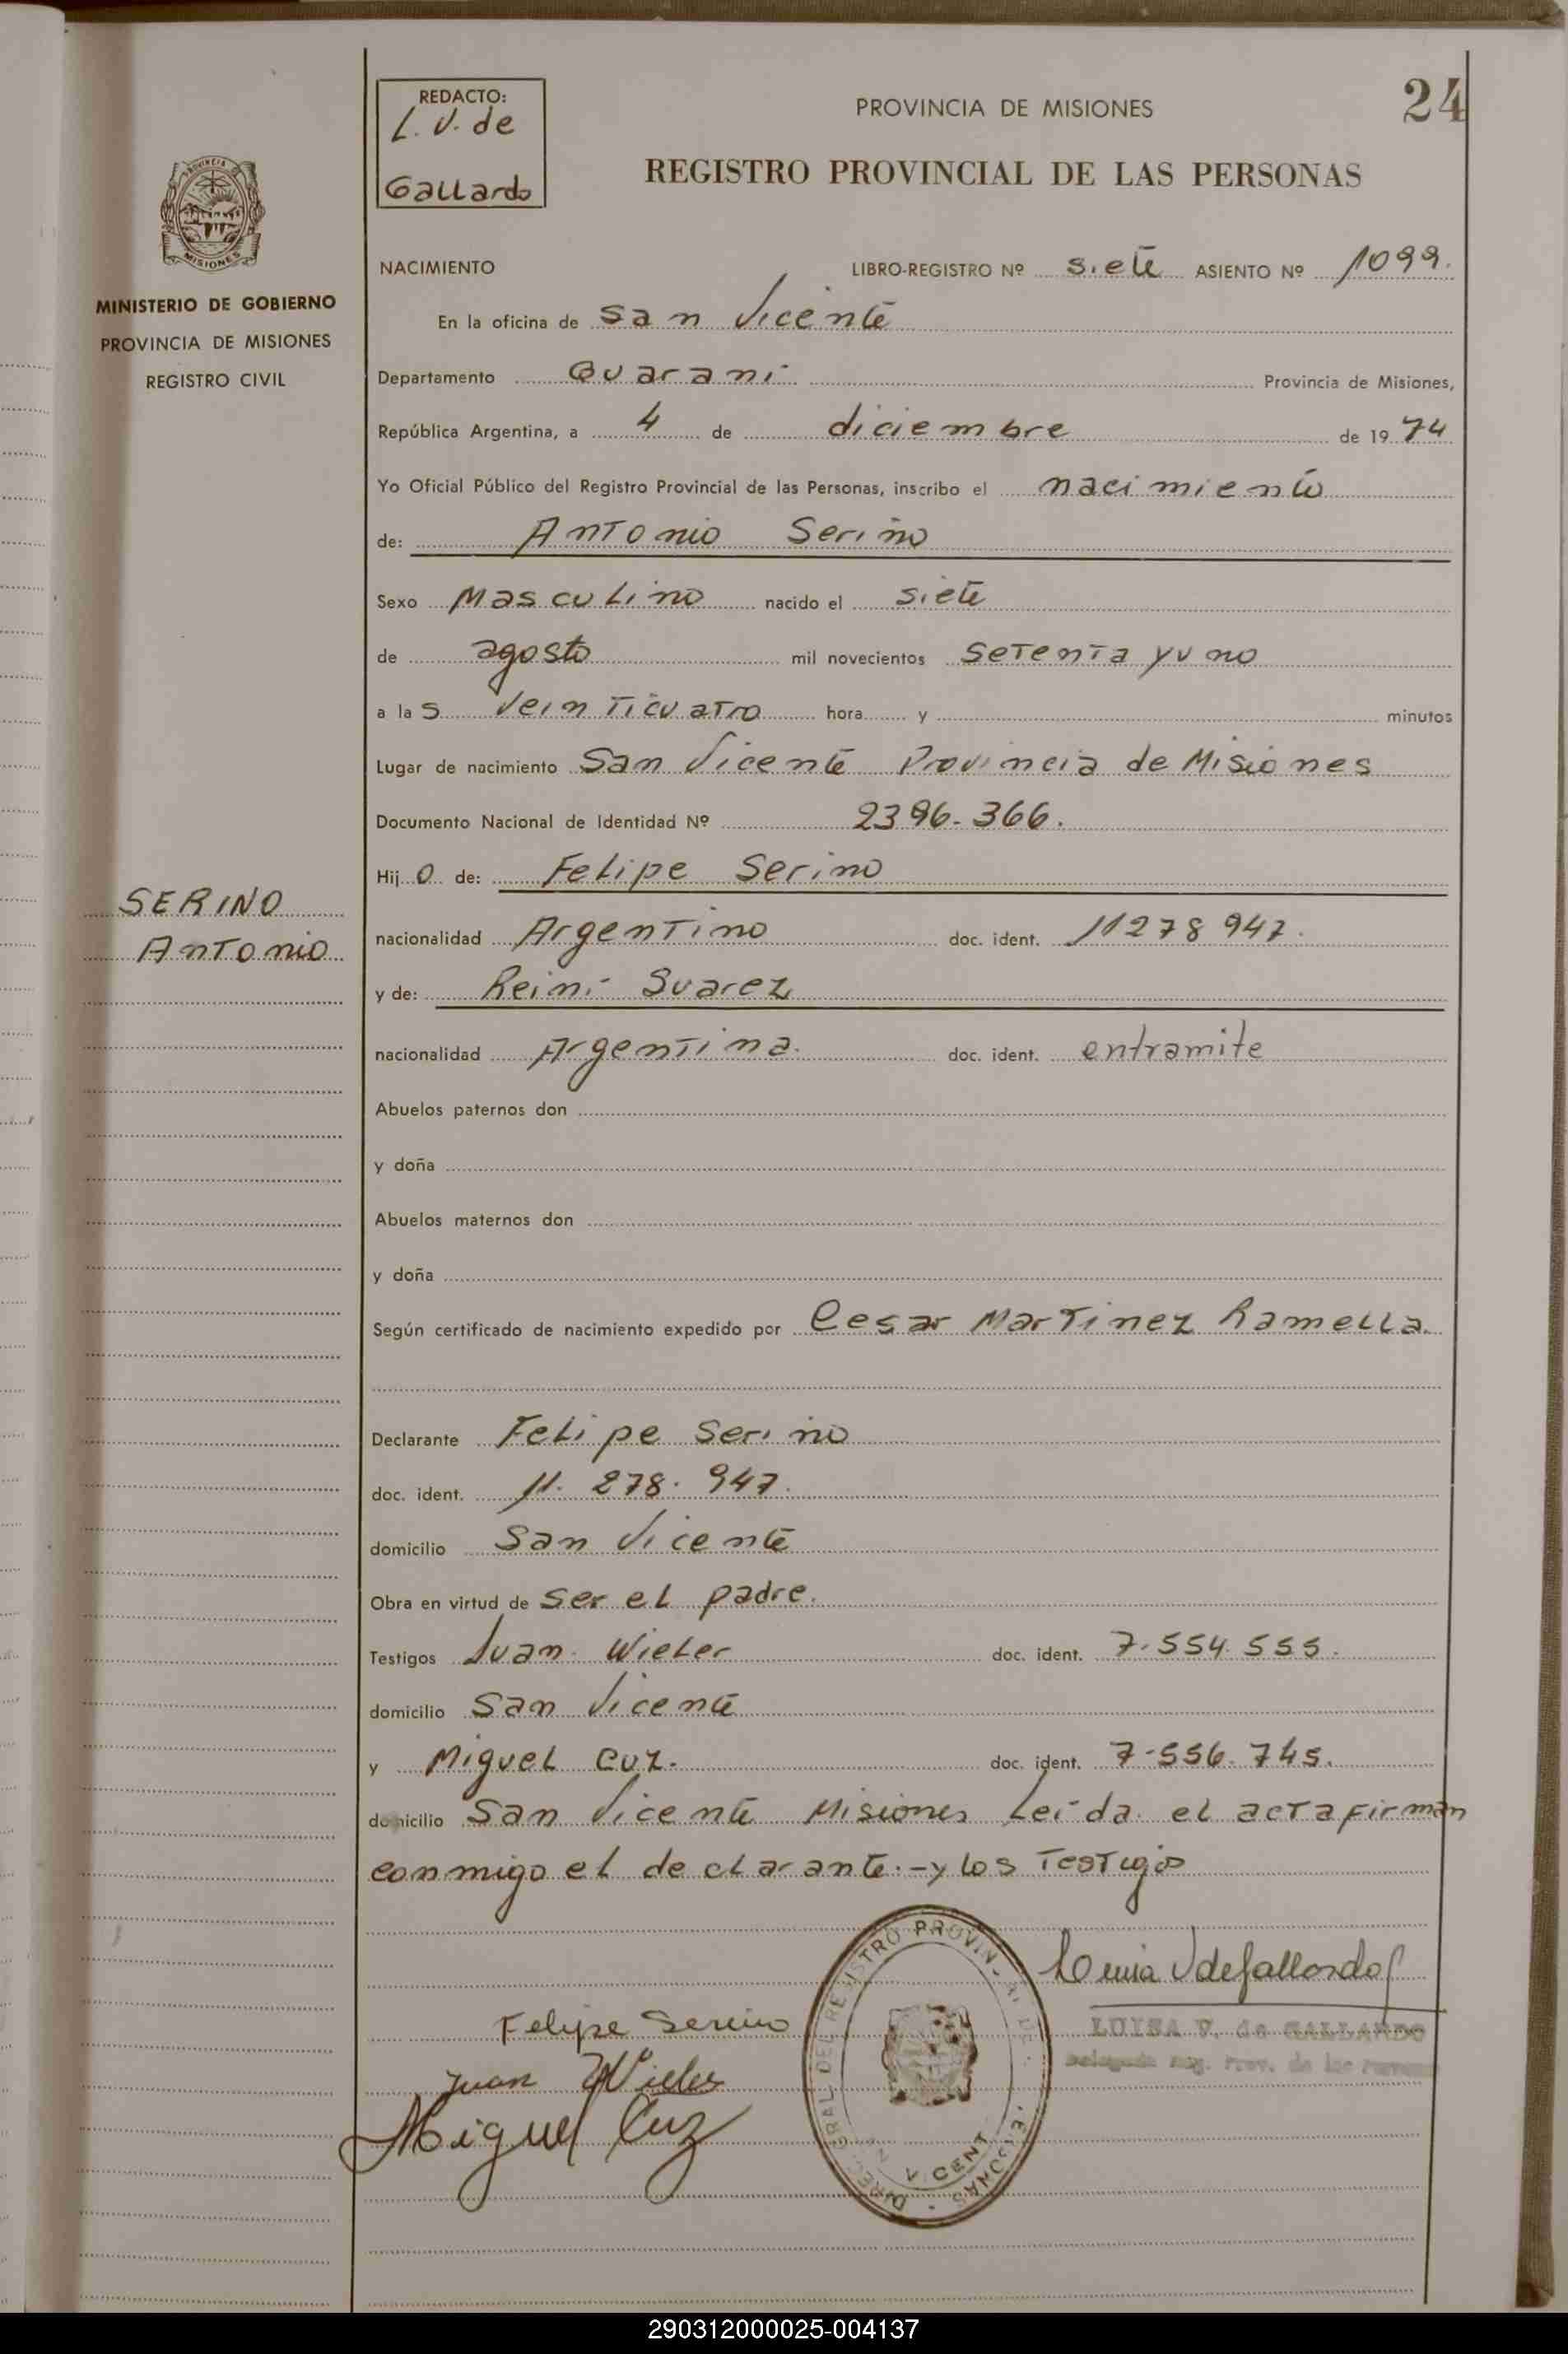 REDACTO:
L. V. de
Gallardo
PROVINCIA DE MISIONES
24
REGISTRO PROVINCIAL DE LAS PERSONAS
PROVINCIA
MISIONES
MINISTERIO DE GOBIERNO
PROVINCIA DE MISIONES
REGISTRO CIVIL
NACIMIENTO LIBRO-REGISTRO Nº siete ASIENTO Nº 1099.
En la oficina de San Vicente
Departamento Guarani Provincia de Misiones,
República Argentina, a 4 de diciembre de 1974
Yo Oficial Público del Registro Provincial de las Personas, inscribo el nacimiento
de: Antonio Serino
Sexo Masculino nacido el siete
de agosto mil novecientos setenta y uno
a las veinticuatro hora y minutos
Lugar de nacimiento San Vicente Provincia de Misiones
Documento Nacional de Identidad Nº 2396-366.
Hijo de: Felipe Serino
SERINO
Antonio
nacionalidad Argentino doc. ident. 11278947.
y de: Reini Suarez
nacionalidad Argentina. doc. ident. entramite
Abuelos paternos don
y doña
Abuelos maternos don
y doña
Según certificado de nacimiento expedido por Cesar Martinez Ramella.
Declarante Felipe Serino
doc. ident. 11.278.947.
domicilio San Vicente
Obra en virtud de ser el padre.
Testigos Juan Wieler doc. ident. 7.554.555.
domicilio San Vicente
y Miguel Cuz. doc. ident. 7-556.745.
domicilio San Vicente Misiones Leida el acta firman
conmigo el declarante.-y los Testigos
Felipe Serino
Juan Wieler
Miguel Cuz
VICENT
LUISA V. de GALLARDO
Delegada Reg. Prov. de las
290312000025-004137